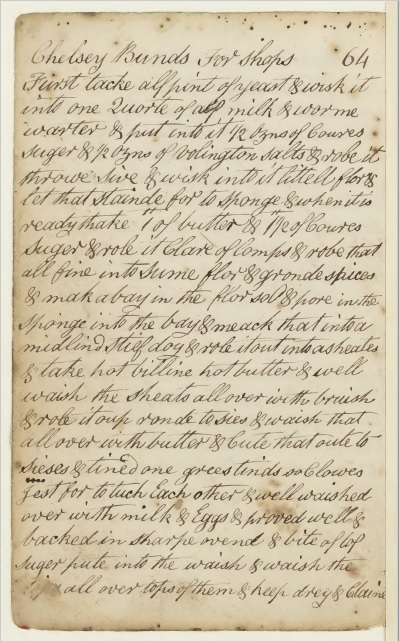 Chelsey Bunds For Shops 64
Furst tacke alf pint of yeast & wisk it
into one Quorte of alf milk & worme
warter & put into it ½ Ozns of Coures
Suger & ½ Ozns of Volington salts & robe it
throwe sive & wisk into it littell flor &
let that Stainde for to Sponge & when it is
ready thake 1 of butter & 1½ of Coures
Suger & role it Clare of lomps & robe that
all fine into Sume flor & gronde spices
& mak a bay in the flor so & pore in the
Sponge into the bay & meack that into a
midlind Stief doy & role it out into a sheates
& take hot billine hot butter & well
waish the Sheats all over with bruish
& role it oup ronde to sies & waish that
all over with butter & Cute that oute to
Sieses & tined one grees tinds so Clowes
Jest for to tuch Each other & well waished
over with milk & Eggs & proved well &
backed in sharpe ovend & bite of lof
suger pute into the waish & waish the
all over tops of them & keep drey & Claine